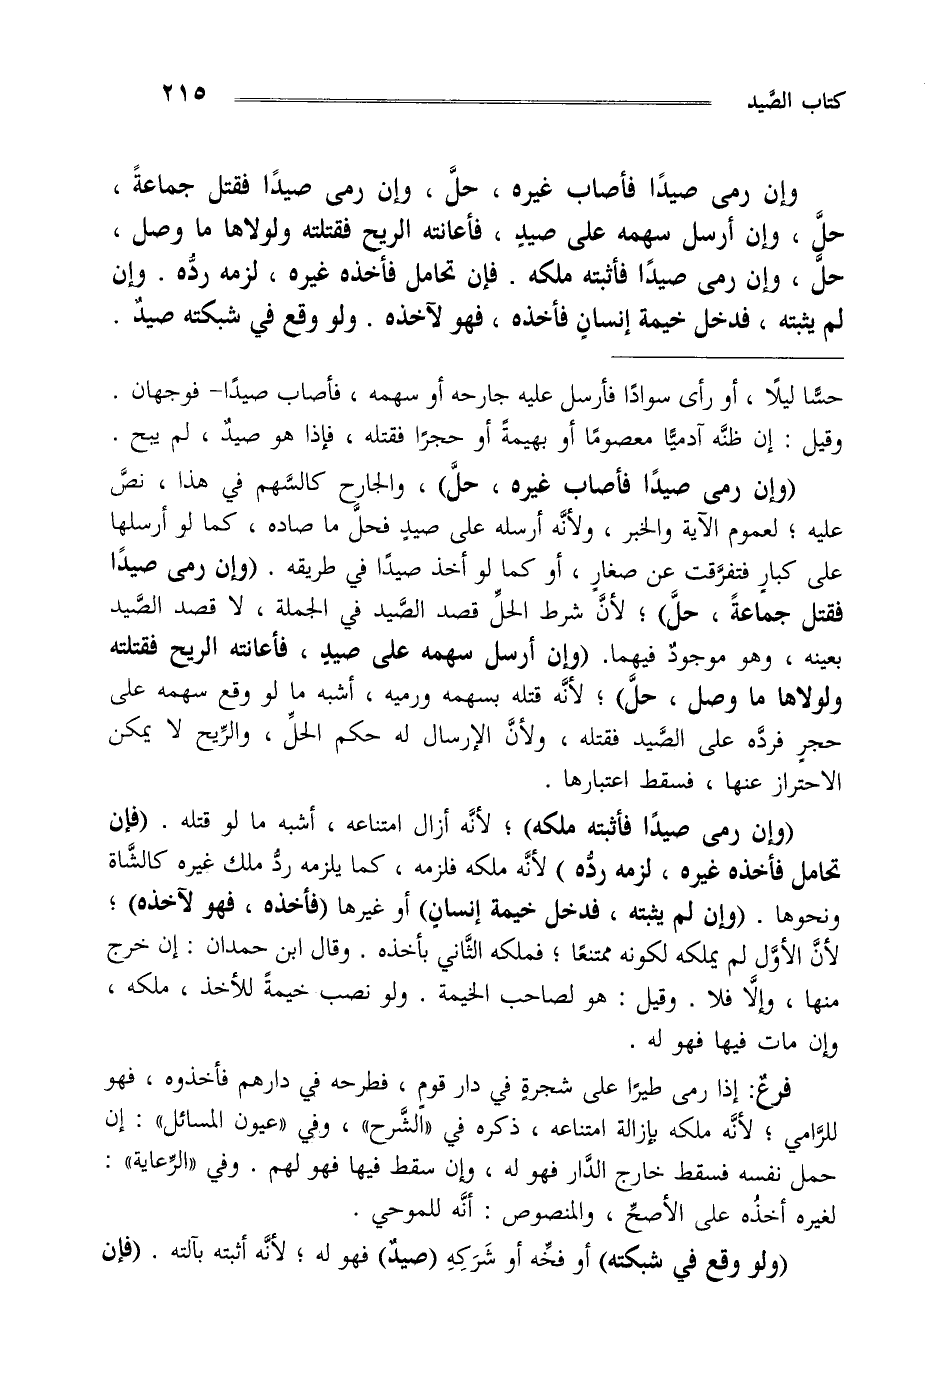 كتاب الصَّيد ٢١٥
وإن رمى صيدًا فأصاب غيره ، حلَّ ، وإن رمى صيدًا فقتل جماعةً ،
حلَّ ، وإن أرسل سهمه على صيدٍ ، فأعانته الريح فقتلته ولولاها ما وصل ،
حلَّ ، وإن رمى صيدًا فأثبته ملكه . فإن تحامل فأخذه غيره ، لزمه ردُّه . وإن
لم يثبته ، فدخل خيمة إنسانٍ فأخذه ، فهو لآخذه . ولو وقع في شبكته صيدٌ .
حسًّا ليلًا ، أو رأى سوادًا فأرسل عليه جارحه أو سهمه ، فأصاب صيدًا- فوجهان .
وقيل : إن ظنَّه آدميًّا معصومًا أو بهيمةً أو حجرًا فقتله ، فإذا هو صيدٌ ، لم يبح .
(وإن رمى صيدًا فأصاب غيره ، حلَّ) ، والجارح كالسَّهم في هذا ، نصَّ
عليه ؛ لعموم الآية والخبر ، ولأنَّه أرسله على صيدٍ فحلَّ ما صاده ، كما لو أرسلها
على كبارٍ فتفرَّقت عن صغارٍ ، أو كما لو أخذ صيدًا في طريقه . (وإن رمى صيدًا
فقتل جماعةً ، حلَّ) ؛ لأنَّ شرط الحلِّ قصد الصَّيد في الجملة ، لا قصد الصَّيد
بعينه ، وهو موجودٌ فيهما. (وإن أرسل سهمه على صيدٍ ، فأعانته الريح فقتلته
ولولاها ما وصل ، حلَّ) ؛ لأنَّه قتله بسهمه ورميه ، أشبه ما لو وقع سهمه على
حجرٍ فردَّه على الصَّيد فقتله ، ولأنَّ الإرسال له حكم الحلِّ ، والرِّيح لا يمكن
الاحتراز عنها ، فسقط اعتبارها .
(وإن رمى صيدًا فأثبته ملكه) ؛ لأنَّه أزال امتناعه ، أشبه ما لو قتله . (فإن
تحامل فأخذه غيره ، لزمه ردُّه ) لأنَّه ملكه فلزمه ، كما يلزمه ردُّ ملك غيره كالشَّاة
ونحوها . (وإن لم يثبته ، فدخل خيمة إنسانٍ) أو غيرها (فأخذه ، فهو لآخذه) ؛
لأنَّ الأوَّل لم يملكه لكونه ممتنعًا ؛ فملكه الثَّاني بأخذه . وقال ابن حمدان : إن خرج
منها ، وإلَّا فلا . وقيل : هو لصاحب الخيمة . ولو نصب خيمةً للأخذ ، ملكه ،
وإن مات فيها فهو له .
فرعٌ: إذا رمى طيرًا على شجرةٍ في دار قومٍ ، فطرحه في دارهم فأخذوه ، فهو
للرَّامي ؛ لأنَّه ملكه بإزالة امتناعه ، ذكره في «الشَّرح» ، وفي «عيون المسائل» : إن
حمل نفسه فسقط خارج الدَّار فهو له ، وإن سقط فيها فهو لهم . وفي «الرِّعاية» :
لغيره أخذُه على الأصحِّ ، والمنصوص : أنَّه للموحي .
(ولو وقع في شبكته) أو فخِّه أو شَرَكِهِ (صيدٌ) فهو له ؛ لأنَّه أثبته بآلته . (فإن